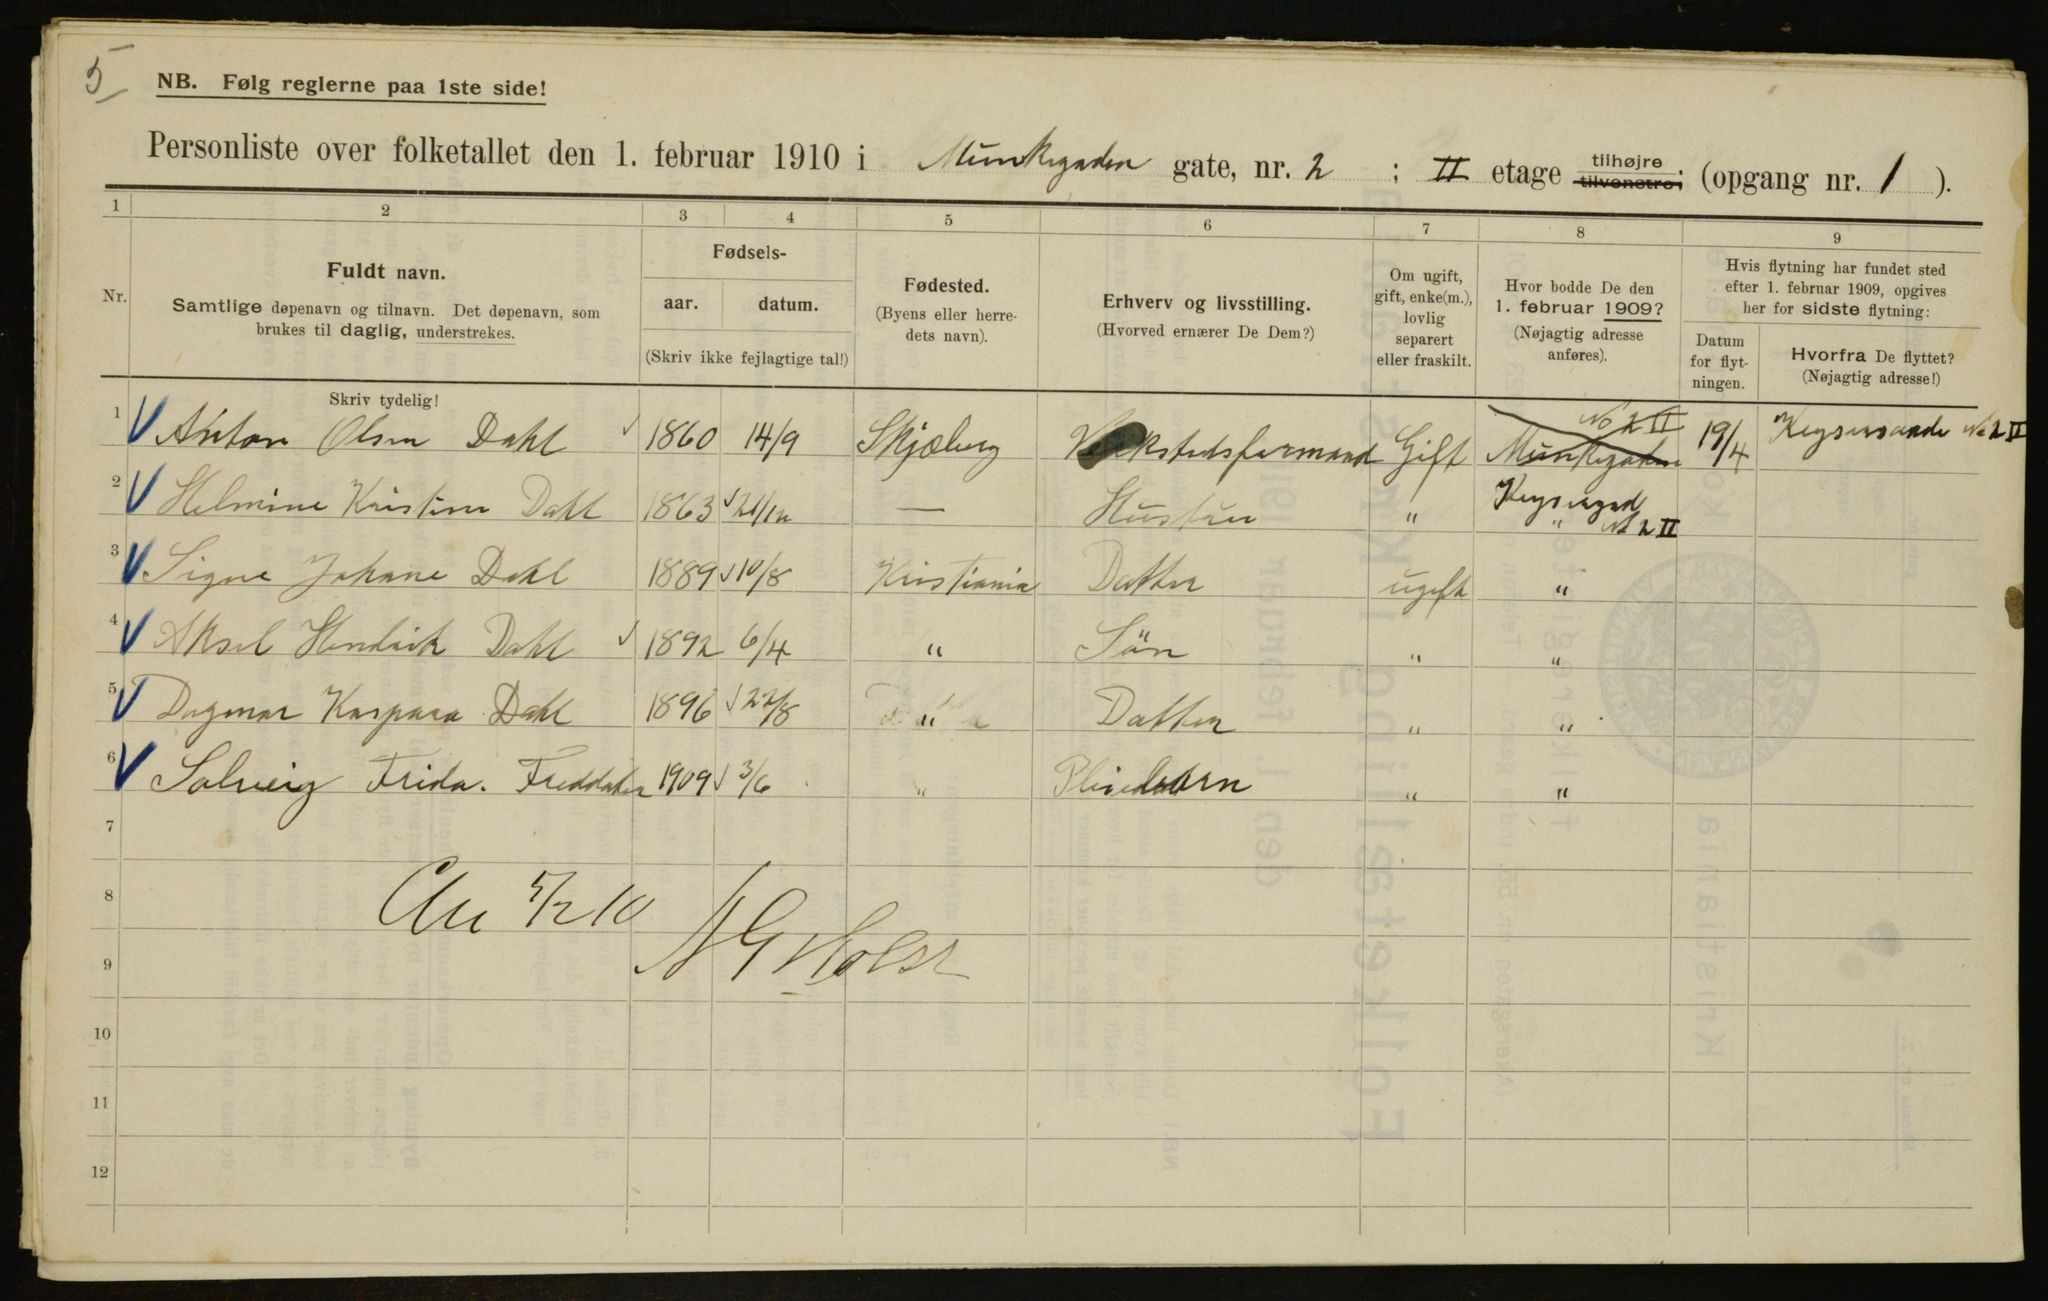 5
NB. Følg reglerne paa 1ste side!
Personliste over folketallet den 1. februar 1910 i Munkegaden gate, nr. 2 ; II etage tilhøjre tilvenstre; (opgang nr. 1 ).
1 2 3 4 5 6 7 8 9
Nr.
Fuldt navn.
Samtlige døpenavn og tilnavn. Det døpenavn, som
brukes til daglig, understrekes.
Skriv tydelig!
Fødsels-
aar. datum.
(Skriv ikke fejlagtige tal!)
Fødested.
(Byens eller herre-
dets navn).
Erhverv og livsstilling.
(Hvorved ernærer De Dem?)
Om ugift,
gift, enke(m.),
lovlig
separert
eller fraskilt.
Hvor bodde De den
1. februar 1909?
(Nøjagtig adresse
anføres).
Hvis flytning har fundet sted
efter 1. februar 1909, opgives
her for sidste flytning:
Datum
for flyt-
ningen.
Hvorfra De flyttet?
(Nøjagtig adresse!)
1 Anton Olsen Dahl 1860 14/9 Skjæberg Verkstedsformand Gift No 2 II Munkegaden 19/4 No 2 II
2 Helmine Kristine Dahl 1863 — Hustru " " No 2 II
3 Signe Johane Dahl 1889 10/8 Kristiania Datter ugift "
4 Aksel Hendrik Dahl 1892 6/4 " Søn " "
5 Dagmar Kaspara Dahl 1896 22/8 " Datter " "
6 Solveig Frida. 1909 3/6 " Pleiebarn " "
7
8
5/2 10
9
N G Holst
10
11
12